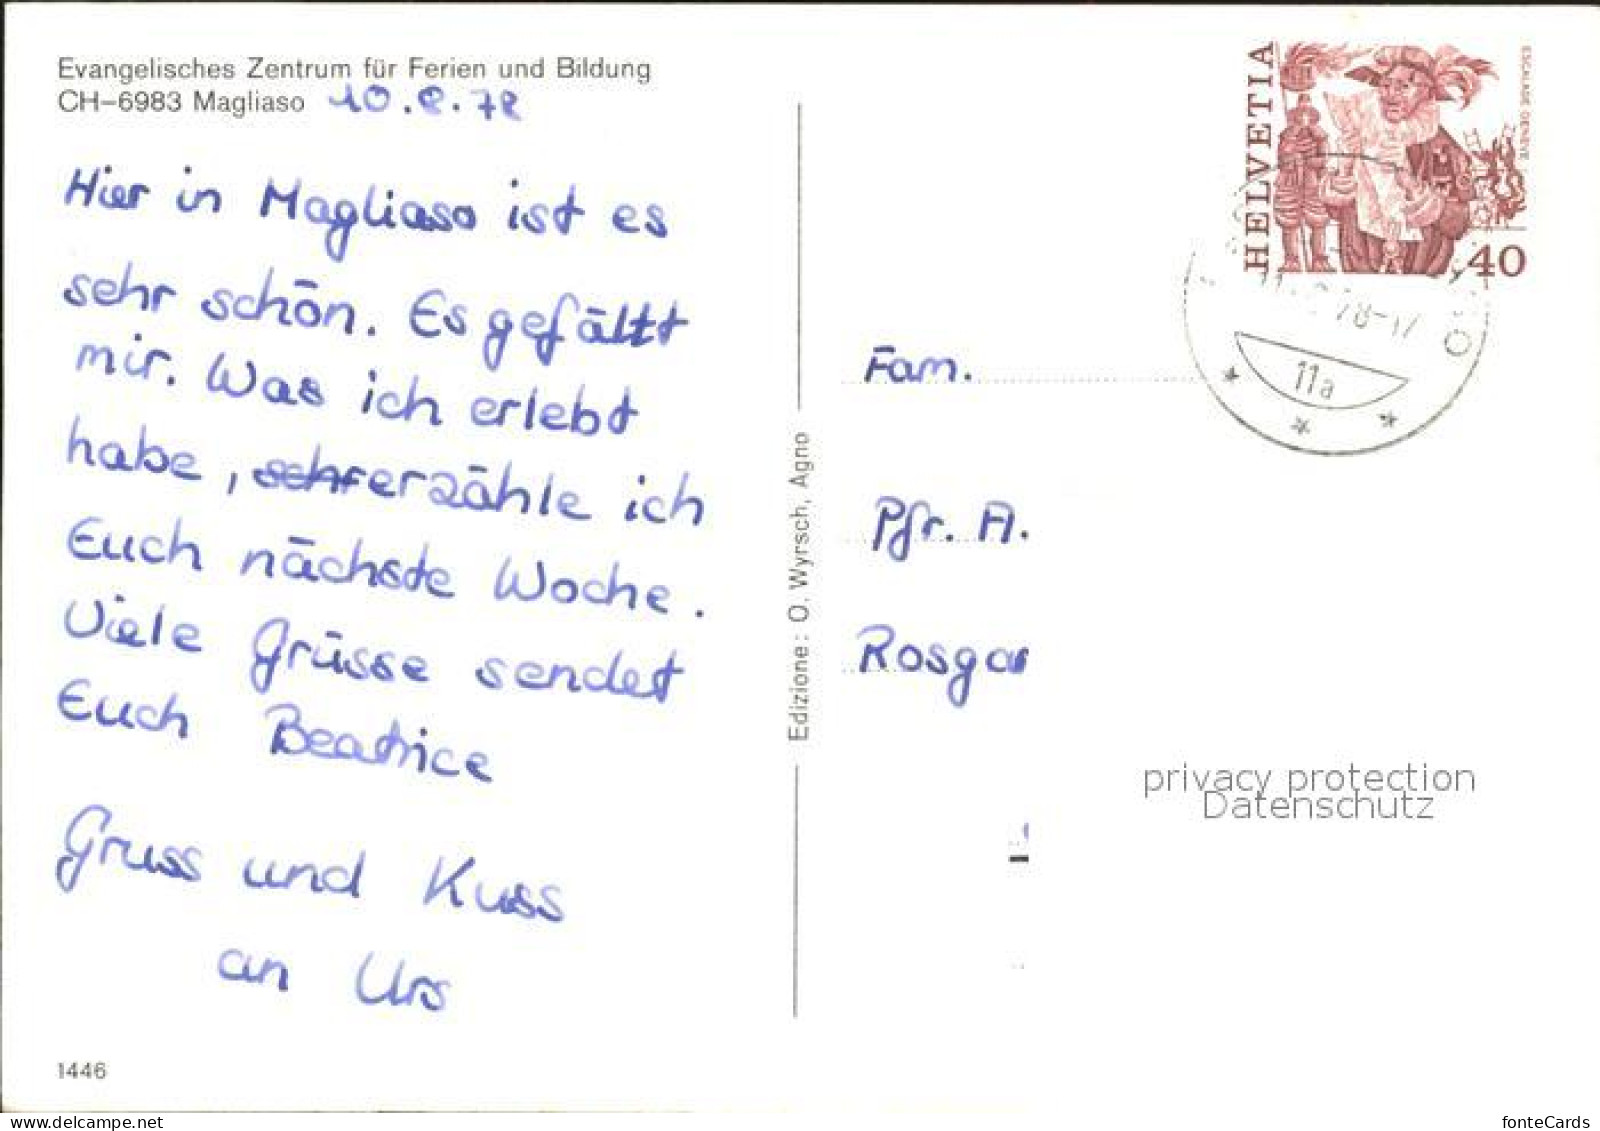 Evangelisches Zentrum für Ferien und Bildung
CH-6983 Magliaso 10.8.78
Hier in Magliaso ist es
sehr schön. Es gefällt
mir. Was ich erlebt
habe, sehr erzähle ich
Euch nächste Woche.
Viele Grüsse sendet
Euch Beatrice
Gruss und Kuss
an Urs
1446
Edizione: O. Wyrsch, Agno
HELVETIA
ESCALADE GENÈVE
40
78-17
11a
Fam.
Pfr. A.
Rosgar
privacy protection
Datenschutz
fonteCards